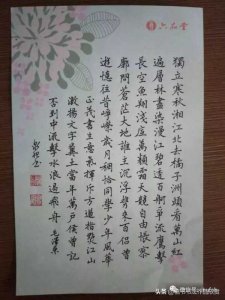 六品堂
獨立寒秋湘江北去橘子洲頭看萬山紅
遍層林盡染漫江碧透百舸爭流鷹擊
長空魚翔淺底萬類霜天競自由悵寥
廓問蒼茫大地誰主沉浮攜來百侶曾
遊憶往昔崢嶸歲月稠恰同學少年風華
正茂書生意氣揮斥方遒指點江山
激揚文字糞土當年萬戶侯曾記
否到中流擊水浪遏飛舟 毛澤東